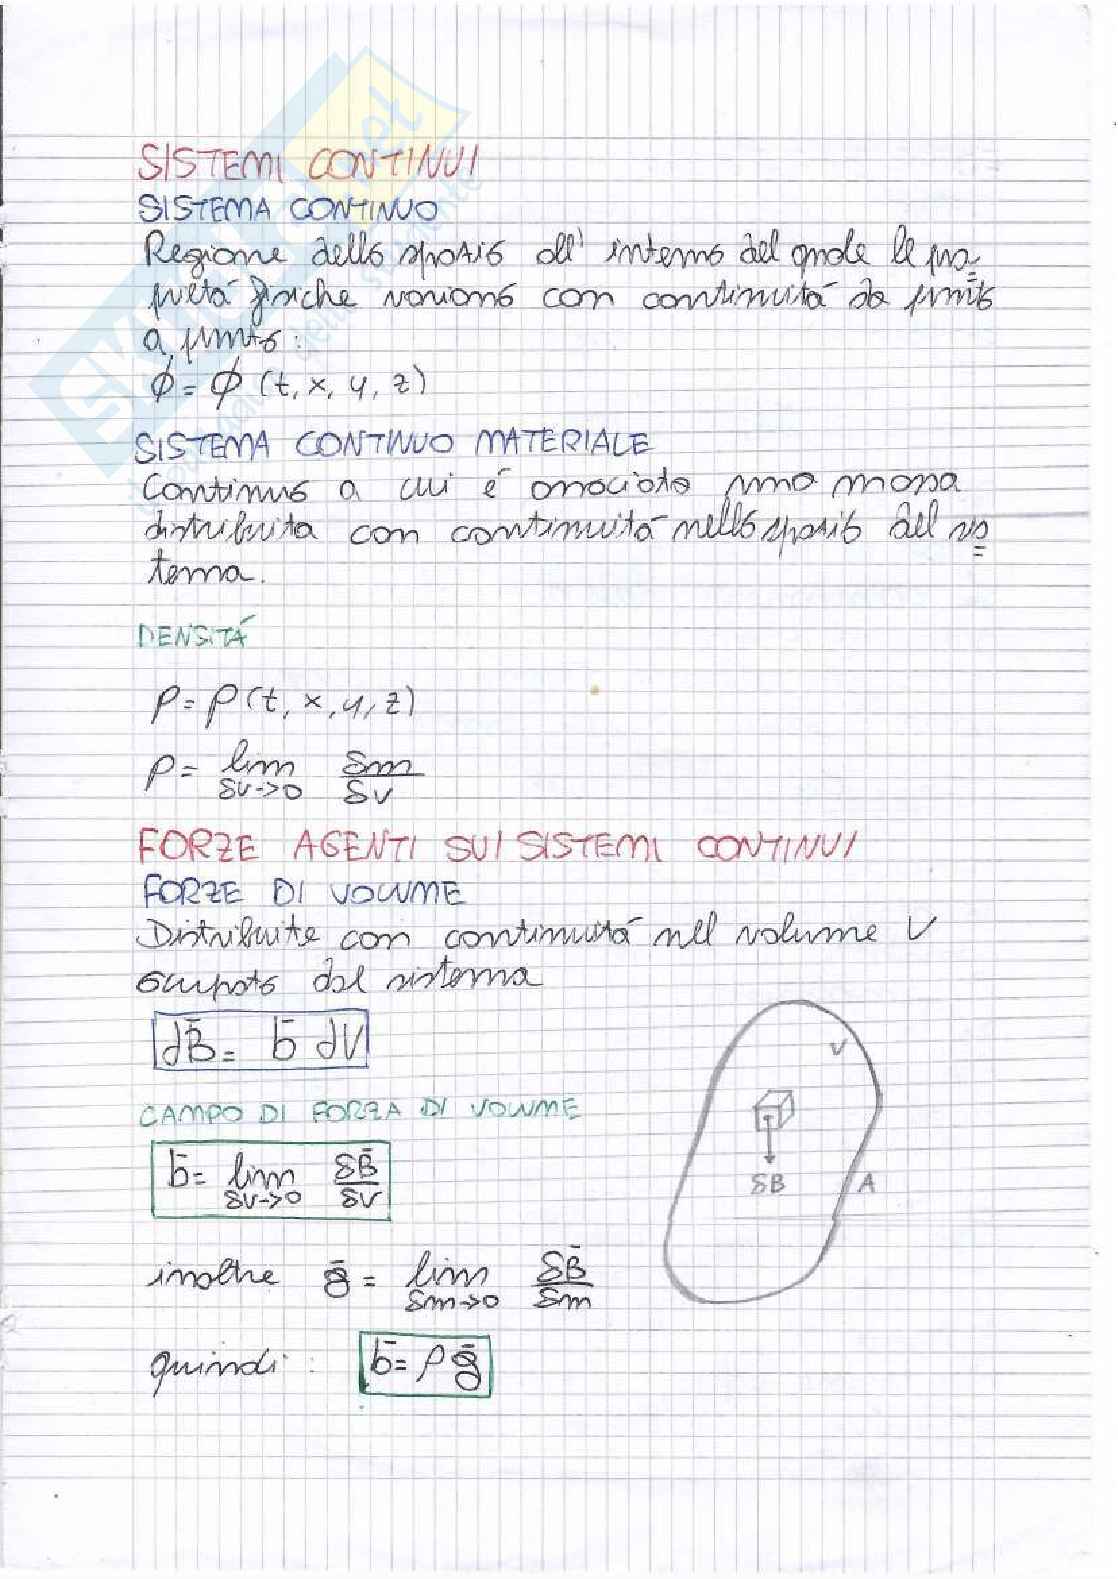 SISTEMI CONTINUI
SISTEMA CONTINUO
Regione dello spazio all'interno del quale le pro
prietá fisiche variano con continuitá da punto
a punto:
ϕ = ϕ (t, x, y, z)
SISTEMA CONTINUO MATERIALE
Continuo a cui é associata una massa
distribuita con continuitá nello spazio del sis
tema.
DENSITÁ
ρ = ρ (t, x, y, z)
ρ = lim δV->0 δm/δV
FORZE AGENTI SUI SISTEMI CONTINUI
FORZE DI VOLUME
Distribuite con continuitá nel volume V
occupato dal sistema
dB̄ = b̄ dV
V
CAMPO DI FORZA DI VOLUME
b̄ = lim δV->0 δB̄/δV
δB
A
inoltre ḡ = lim δm->0 δB̄/δm
quindi: b̄ = ρ ḡ
SKUOLA.net